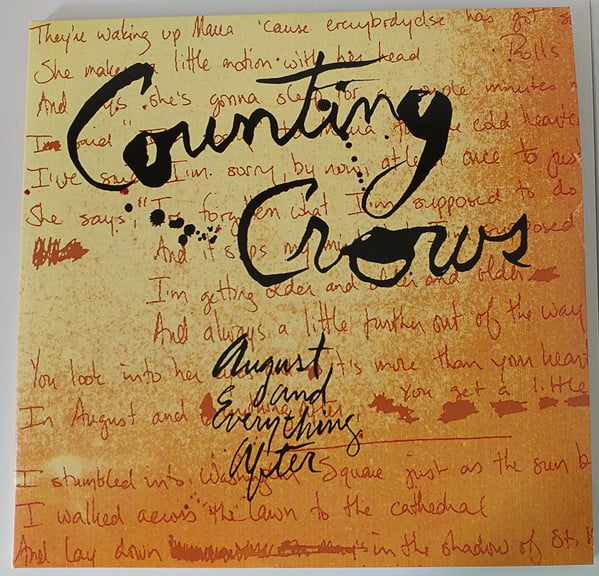 They're waking up Maria 'cause everybodyelse has got s
She makes a little motion with her head Rolls
And says she's gonna sleep for a couple minutes
I said "I to Maria for the cold hearted
Counting
I've said I'm sorry, by now, at least once to just
She says, "I've forgotten what I'm supposed to do
Crows
And it slips my I'm supposed
I'm getting older and older and older
And always a little further out of the way
You look into her it's more than your heart
August
and
Everything
After
In August and You get a little
I stumbled into Washington Square just as the sun b
I walked across the lawn to the cathedral
And lay down in the shadow of St.